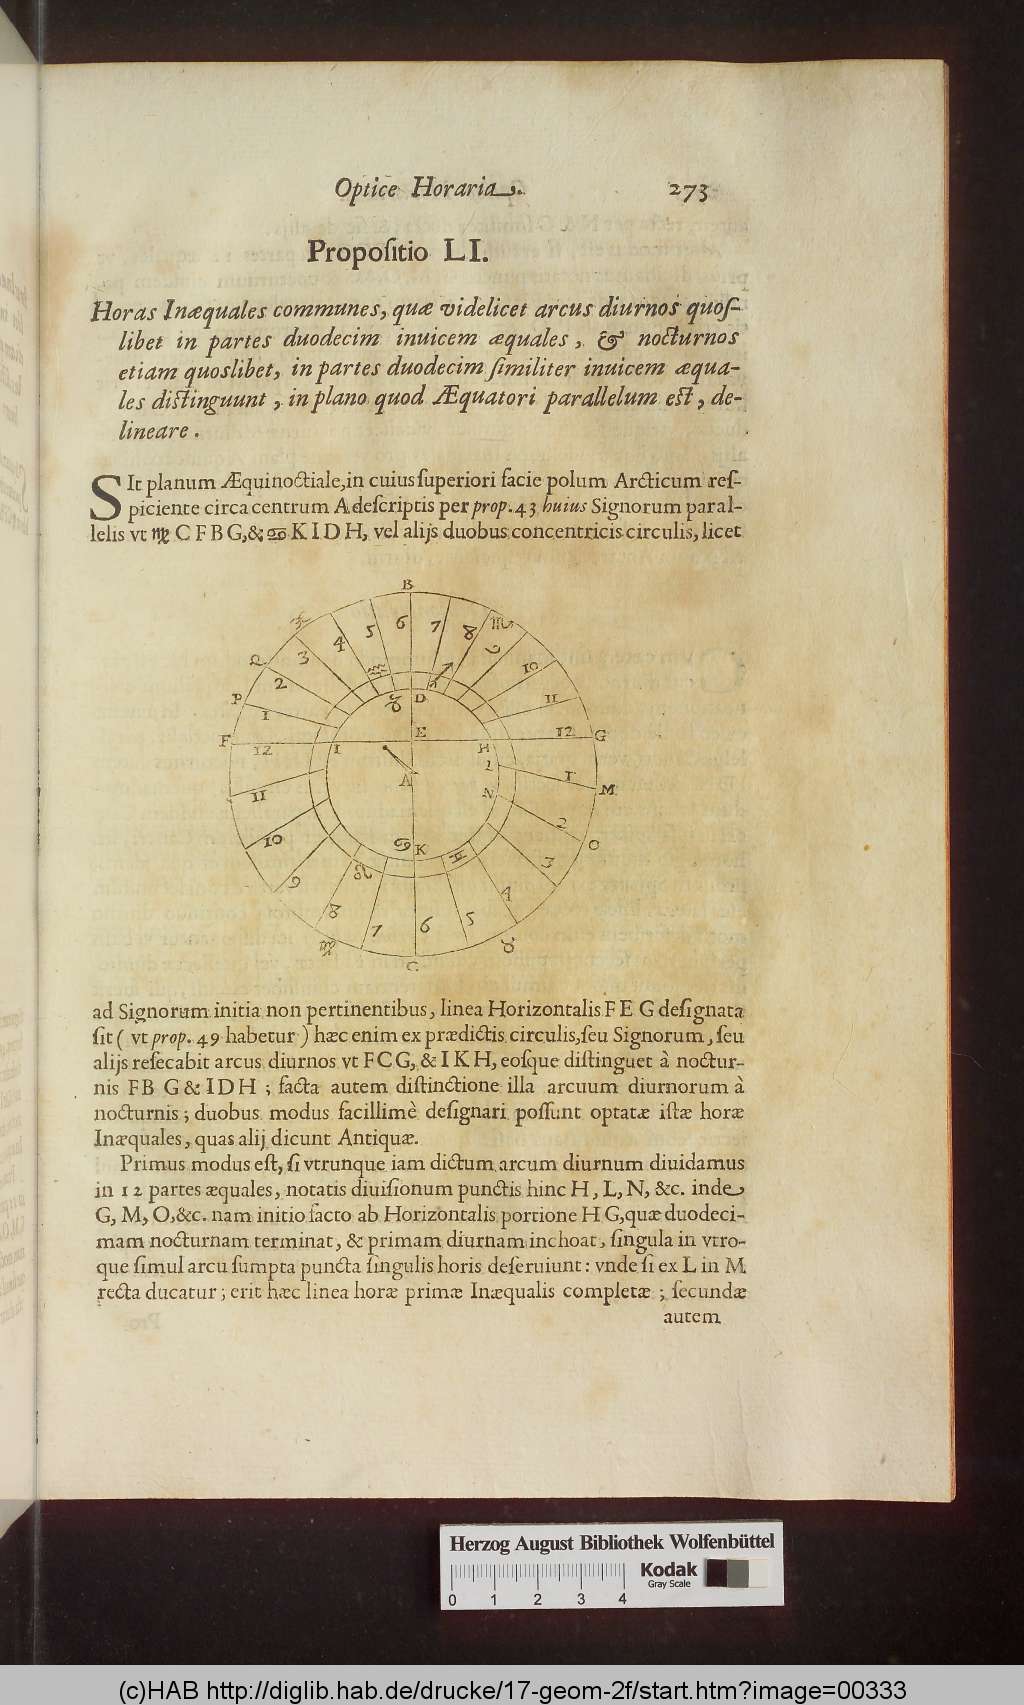 Optice Horaria. 273
Propositio LI.
Horas Inæquales communes, quæ videlicet arcus diurnos quoſ-
libet in partes duodecim inuicem æquales, & nocturnos
etiam quoslibet, in partes duodecim ſimiliter inuicem æqua-
les diſtinguunt, in plano quod Æquatori parallelum eſt, de-
lineare.
SIt planum Æquinoctiale, in cuius ſuperiori facie polum Arcticum reſ-
piciente circa centrum A, deſcriptis per prop. 43 huius Signorum paral-
lelis vt ♍ C F B G, & ♋ K I D H, vel alijs duobus concentricis circulis, licet
B
♏
4 5 6 7 8
3 9
Ω 2 10
P 1 11
♒ ♐
♑ D
F 12 E 12 G
I H
A L 1 M
11 N
10 2 O
♋ K
♌ ♊ 3
9 4
8 7 6 5
♍ C ♉
ad Signorum initia non pertinentibus, linea Horizontalis F E G deſignata
ſit ( vt prop. 49 habetur ) hæc enim ex prædictis circulis, ſeu Signorum, ſeu
alijs reſecabit arcus diurnos vt F C G, & I K H, eoſque diſtinguet à noctur-
nis FB G & I D H ; facta autem diſtinctione illa arcuum diurnorum à
nocturnis ; duobus modus facillimè deſignari poſſunt optatæ iſtæ horæ
Inæquales, quas alij dicunt Antiquæ.
Primus modus eſt, ſi vtrunque iam dictum arcum diurnum diuidamus
in 12 partes æquales, notatis diuiſionum punctis hinc H, L, N, &c. inde
G, M, O, &c. nam initio facto ab Horizontalis portione H G, quæ duodeci-
mam nocturnam terminat, & primam diurnam inchoat, ſingula in vtro-
que ſimul arcu ſumpta puncta ſingulis horis deſeruiunt : vnde ſi ex L in M
recta ducatur ; erit hæc linea horæ primæ Inæqualis completæ ; ſecundæ
autem
Herzog August Bibliothek Wolfenbüttel
Kodak
Gray Scale
0 1 2 3 4
(c)HAB http://diglib.hab.de/drucke/17-geom-2f/start.htm?image=00333